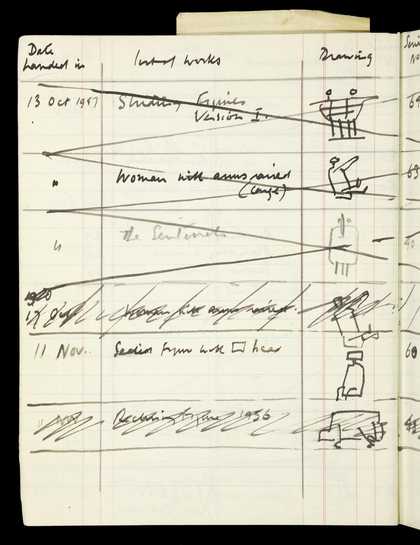 Date
handed in
works
Drawing
13 Oct 1957
Standing Figures
Version I.
"
Woman with arms raised
(large)
"
The Sentinels
17 Oct
Woman with arms raised
11 Nov.
Seated figure with □ head
Reclining figure 1956